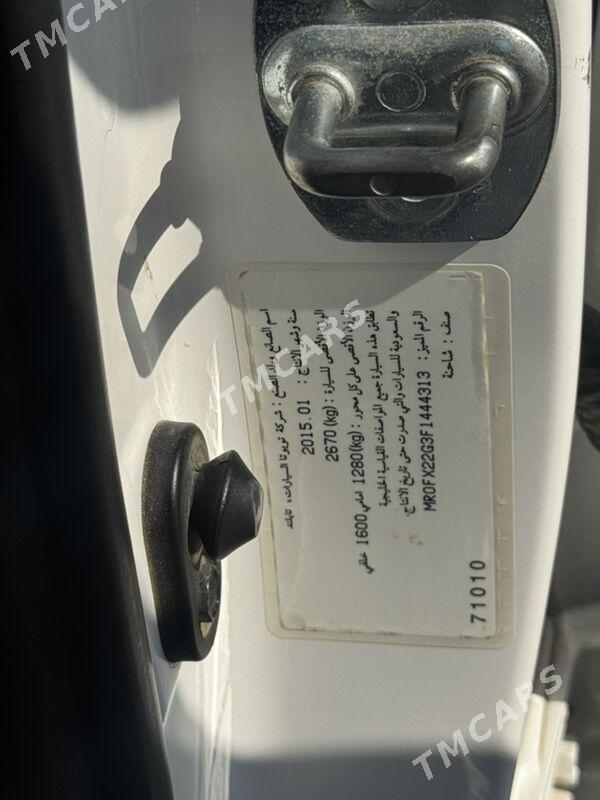 اسم الصانع وبلد الصنع : شركة تويوتا للسيارات، تايلند
سنة وشهر الانتاج : 2015.01
الوزن الأقصى للسيارة : 2670(kg)
الوزن الأقصى على كل محور : 1280(kg) امامي 1600 خلفي
تطابق هذه السيارة جميع المواصفات القياسية الخليجية
والسعودية للسيارات والتي صدرت حتى تاريخ الانتاج.
الرقم المميز : MR0FX22G3F1444313
صنف : شاحنة
71010
TMCARS
TMCARS
TMCARS